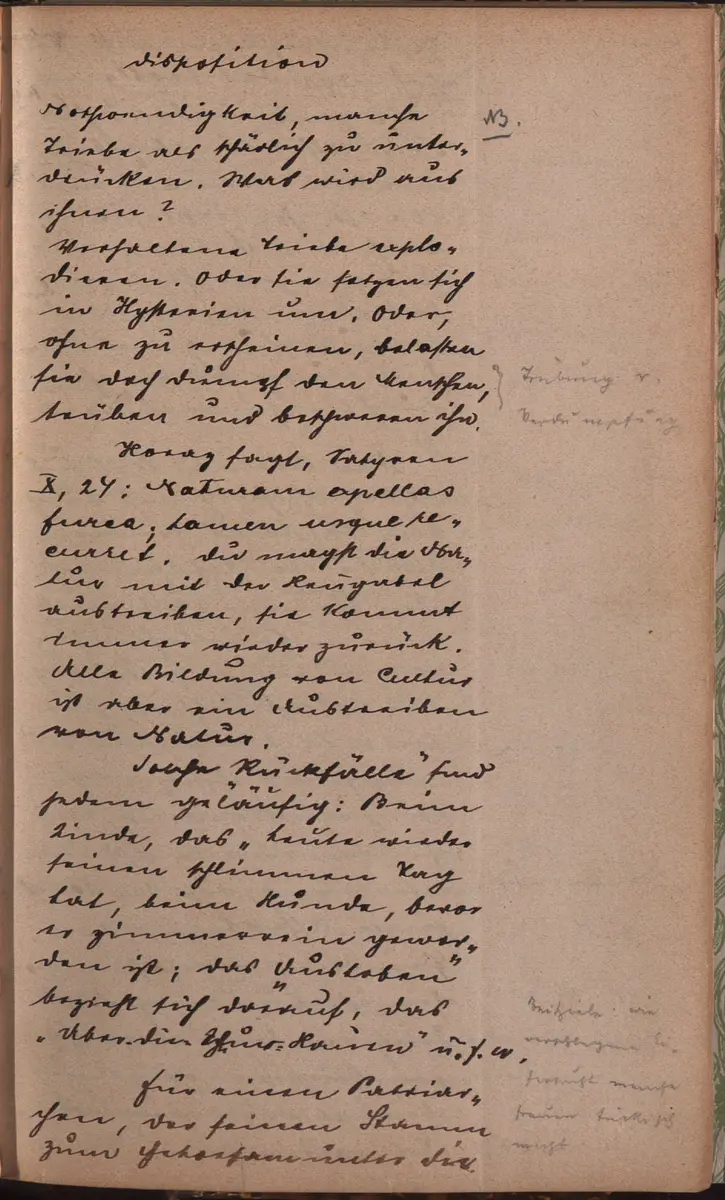 Disposition
Nothwendigkeit, manche
NB.
Triebe als schädlich zu unter-
drücken. Was wird aus
ihnen?
Verhaltene Triebe explo-
dieren. Oder sie setzen sich
in Hysterien um. Oder,
ohne zu erscheinen, belasten
sie doch dumpf den Menschen,
trüben und beschweren ihn.
Trübung u.
Verdumpfung
Horaz sagt, Satyren
X, 24: Naturam expellas
furca, tamen usque re-
curret. Du magst die Na-
tur mit der Heugabel
austreiben, sie kommt
immer wieder zurück.
Alle Bildung von Cultur
ist aber ein Austreiben
von Natur.
Solche "Rückfälle" sind
jedem geläufig: Beim
Kinde, das "heute wieder
seinen schlimmen Tag
hat, beim Hunde, bevor
er zimmerrein gewor-
den ist; das "Austoben"
bezieht sich darauf, das
"Über-die-Schnur-Hauen" u.s.w.
Beispiele: wie
manche
Frauen tückisch
macht
Für einen Patriar-
chen, der seinen Stamm
zum Gehorsam unter die